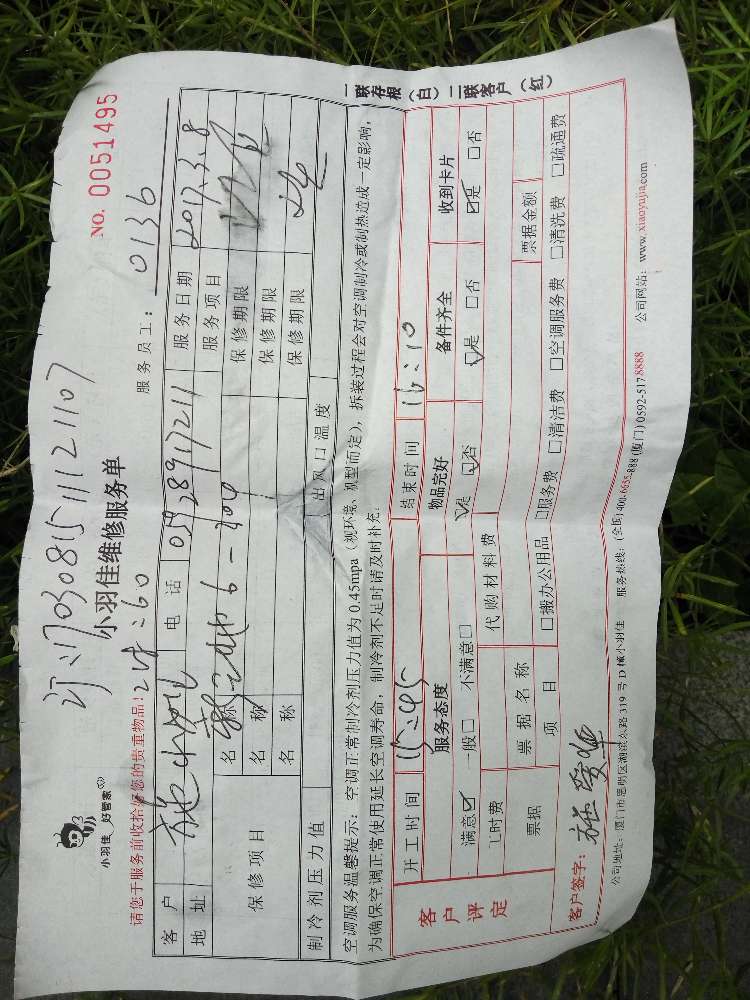 订1703081511121107
小羽佳 好管家
小羽佳维修服务单
NO. 0051495
请您于服务前收拾好您的贵重物品!
服务员工: 0136
客户 施小姐 电话 服务日期 2017.3.8
地址 服务项目
保修项目 名称 保修期限
名称 保修期限
名称 保修期限
制冷剂压力值 出风口温度
空调服务温馨提示:空调正常制冷剂压力值为0.45mpa(视环境、机型而定),拆装过程会对空调制冷或制热造成一定影响,
为确保空调正常使用延长空调寿命,制冷剂不足时请及时补充。
一联存根(白)二联客户(红)
客户评定
开工时间 15:45 结束时间 16:10
服务态度 物品完好 备件齐全 收到卡片
满意☑ 一般□ 不满意□ ☑是 □否 ☑是 □否 ☑是 □否
工时费 代购材料费
票据 票据名称 票据金额
项目 □搬办公用品 □服务费 □清洁费 □空调服务费 □清洗费 □疏通费
客户签字:
公司地址:厦门市思明区湖滨东路319号D幢小羽佳 服务热线:(全国)400-6635-888(厦门)0592-5178888 公司网站:www.xiaoyujia.com